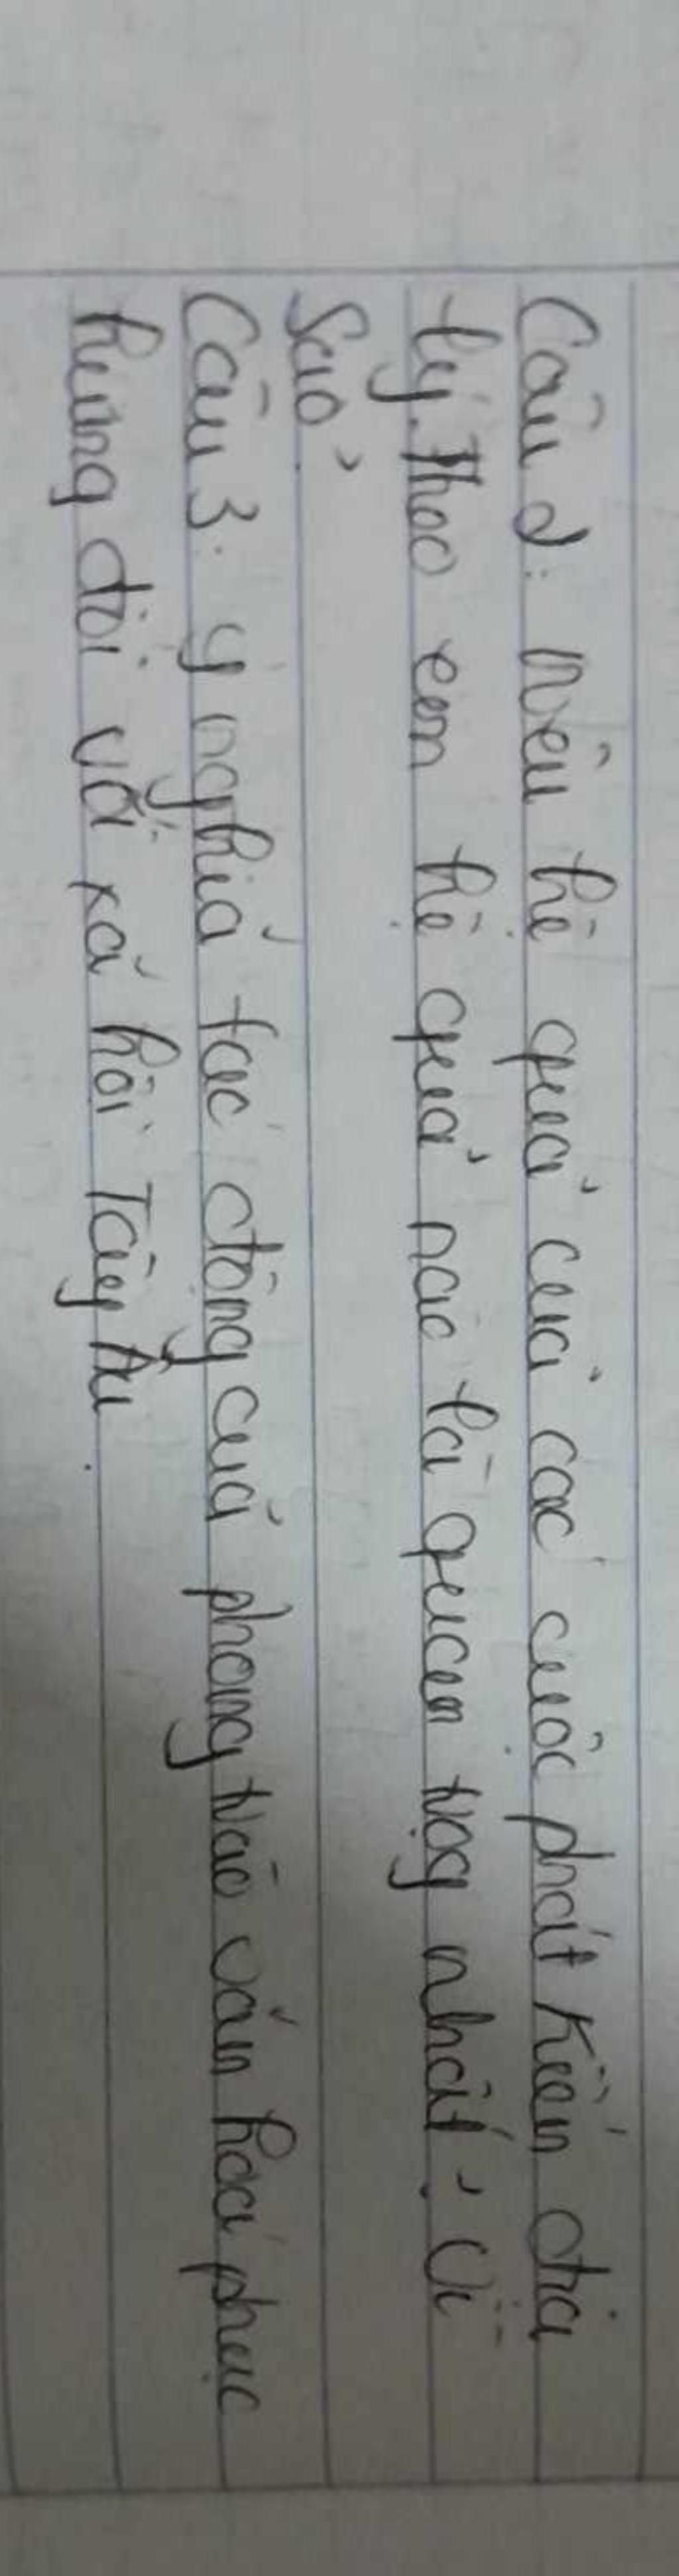 Câu 2: Nêu hệ quả của các cuộc phát kiến địa
lý. Theo em hệ quả nào là quan trọng nhất? Vì
sao?
Câu 3: ý nghĩa tác động của phong trào văn hoá phục
hưng đối với xã hội Tây Âu.